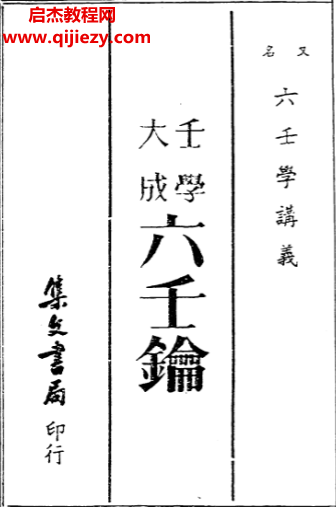 启杰教程网
www.qijiezy.com
又名
六壬學講義
壬學
大成
六壬鑰
集文書局
印行